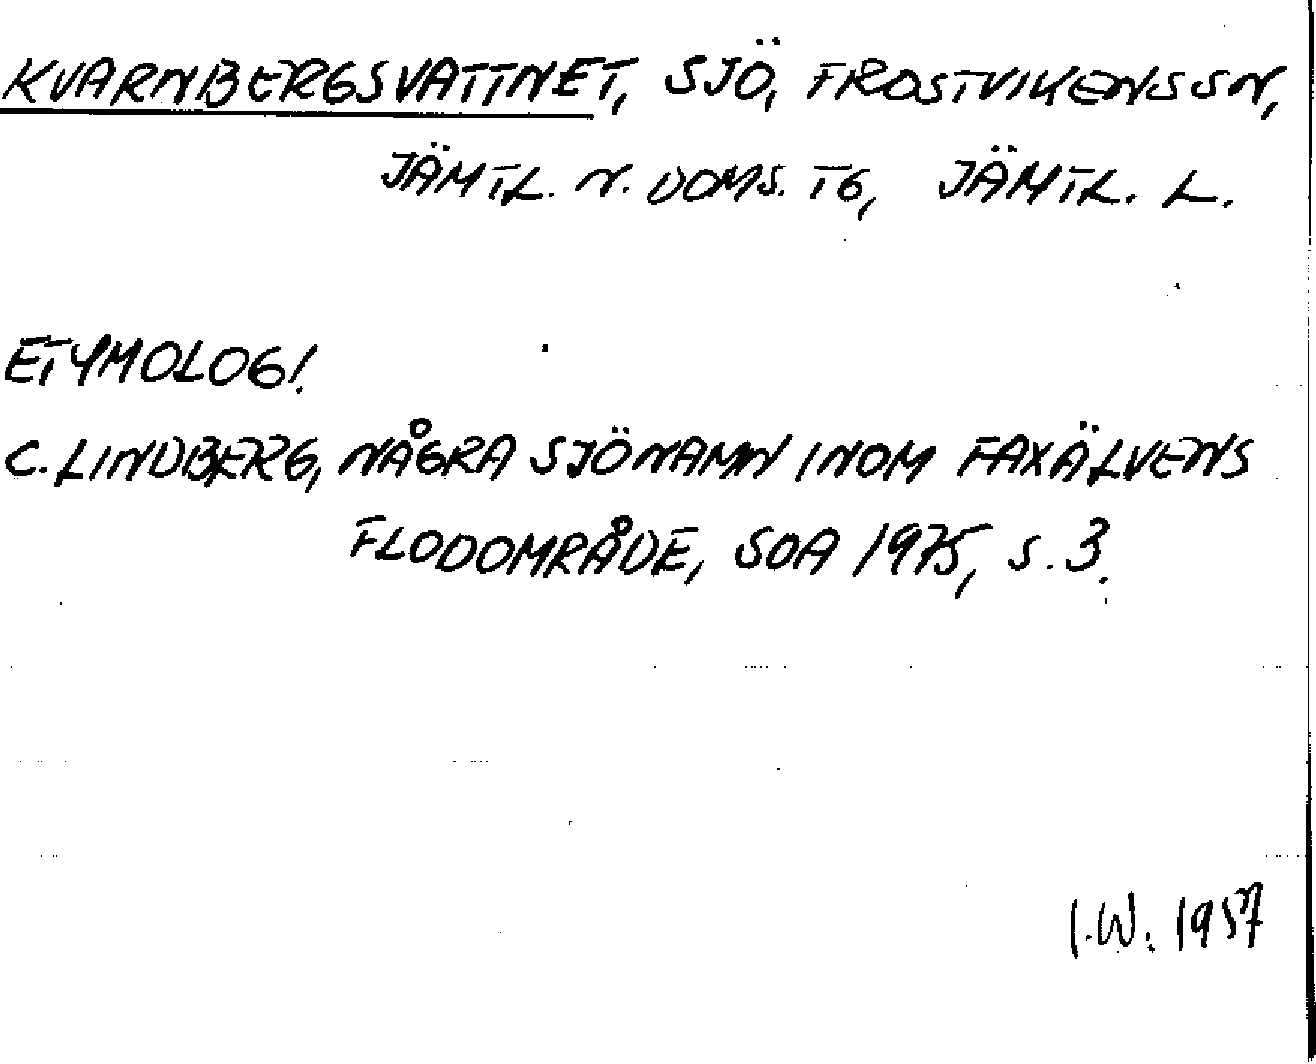 KVARNBERGSVATTNET, SJÖ, FROSTVIKENS SN,
JÄMTL. N. DOMS. TG, JÄMTL. L.
ETYMOLOGI.
C. LINDBERG, NÅGRA SJÖNAMN INOM FAXÄLVENS
FLODOMRÅDE, SOA 1975, S. 3.
I.W. 1987